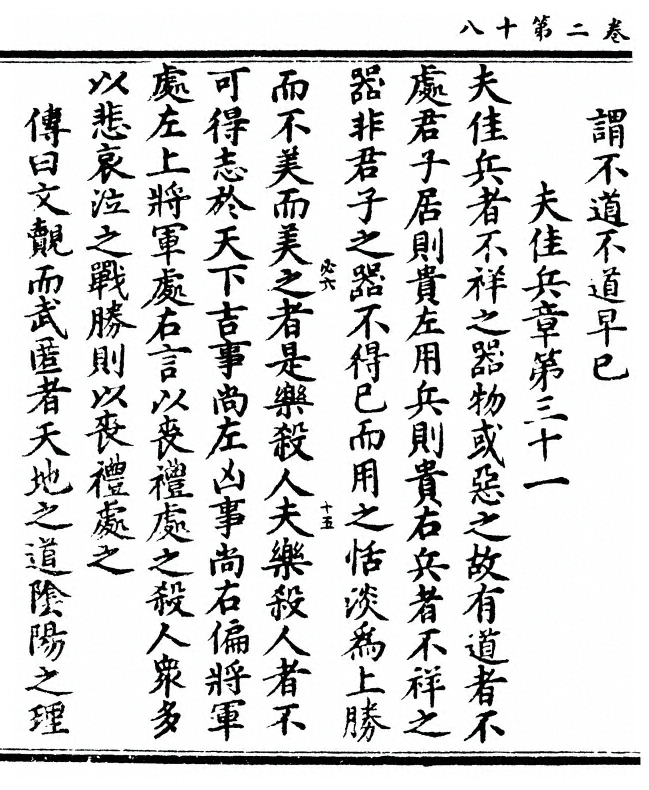 卷二第十八
謂不道不道早已
夫佳兵章第三十一
夫佳兵者不祥之器物或惡之故有道者不
處君子居則貴左用兵則貴右兵者不祥之
器非君子之器不得已而用之恬淡爲上勝
必六
十五
而不美而美之者是樂殺人夫樂殺人者不
可得志於天下吉事尚左凶事尚右偏將軍
處左上將軍處右言以喪禮處之殺人衆多
以悲哀泣之戰勝則以喪禮處之
傳曰文覿而武匿者天地之道陰陽之理